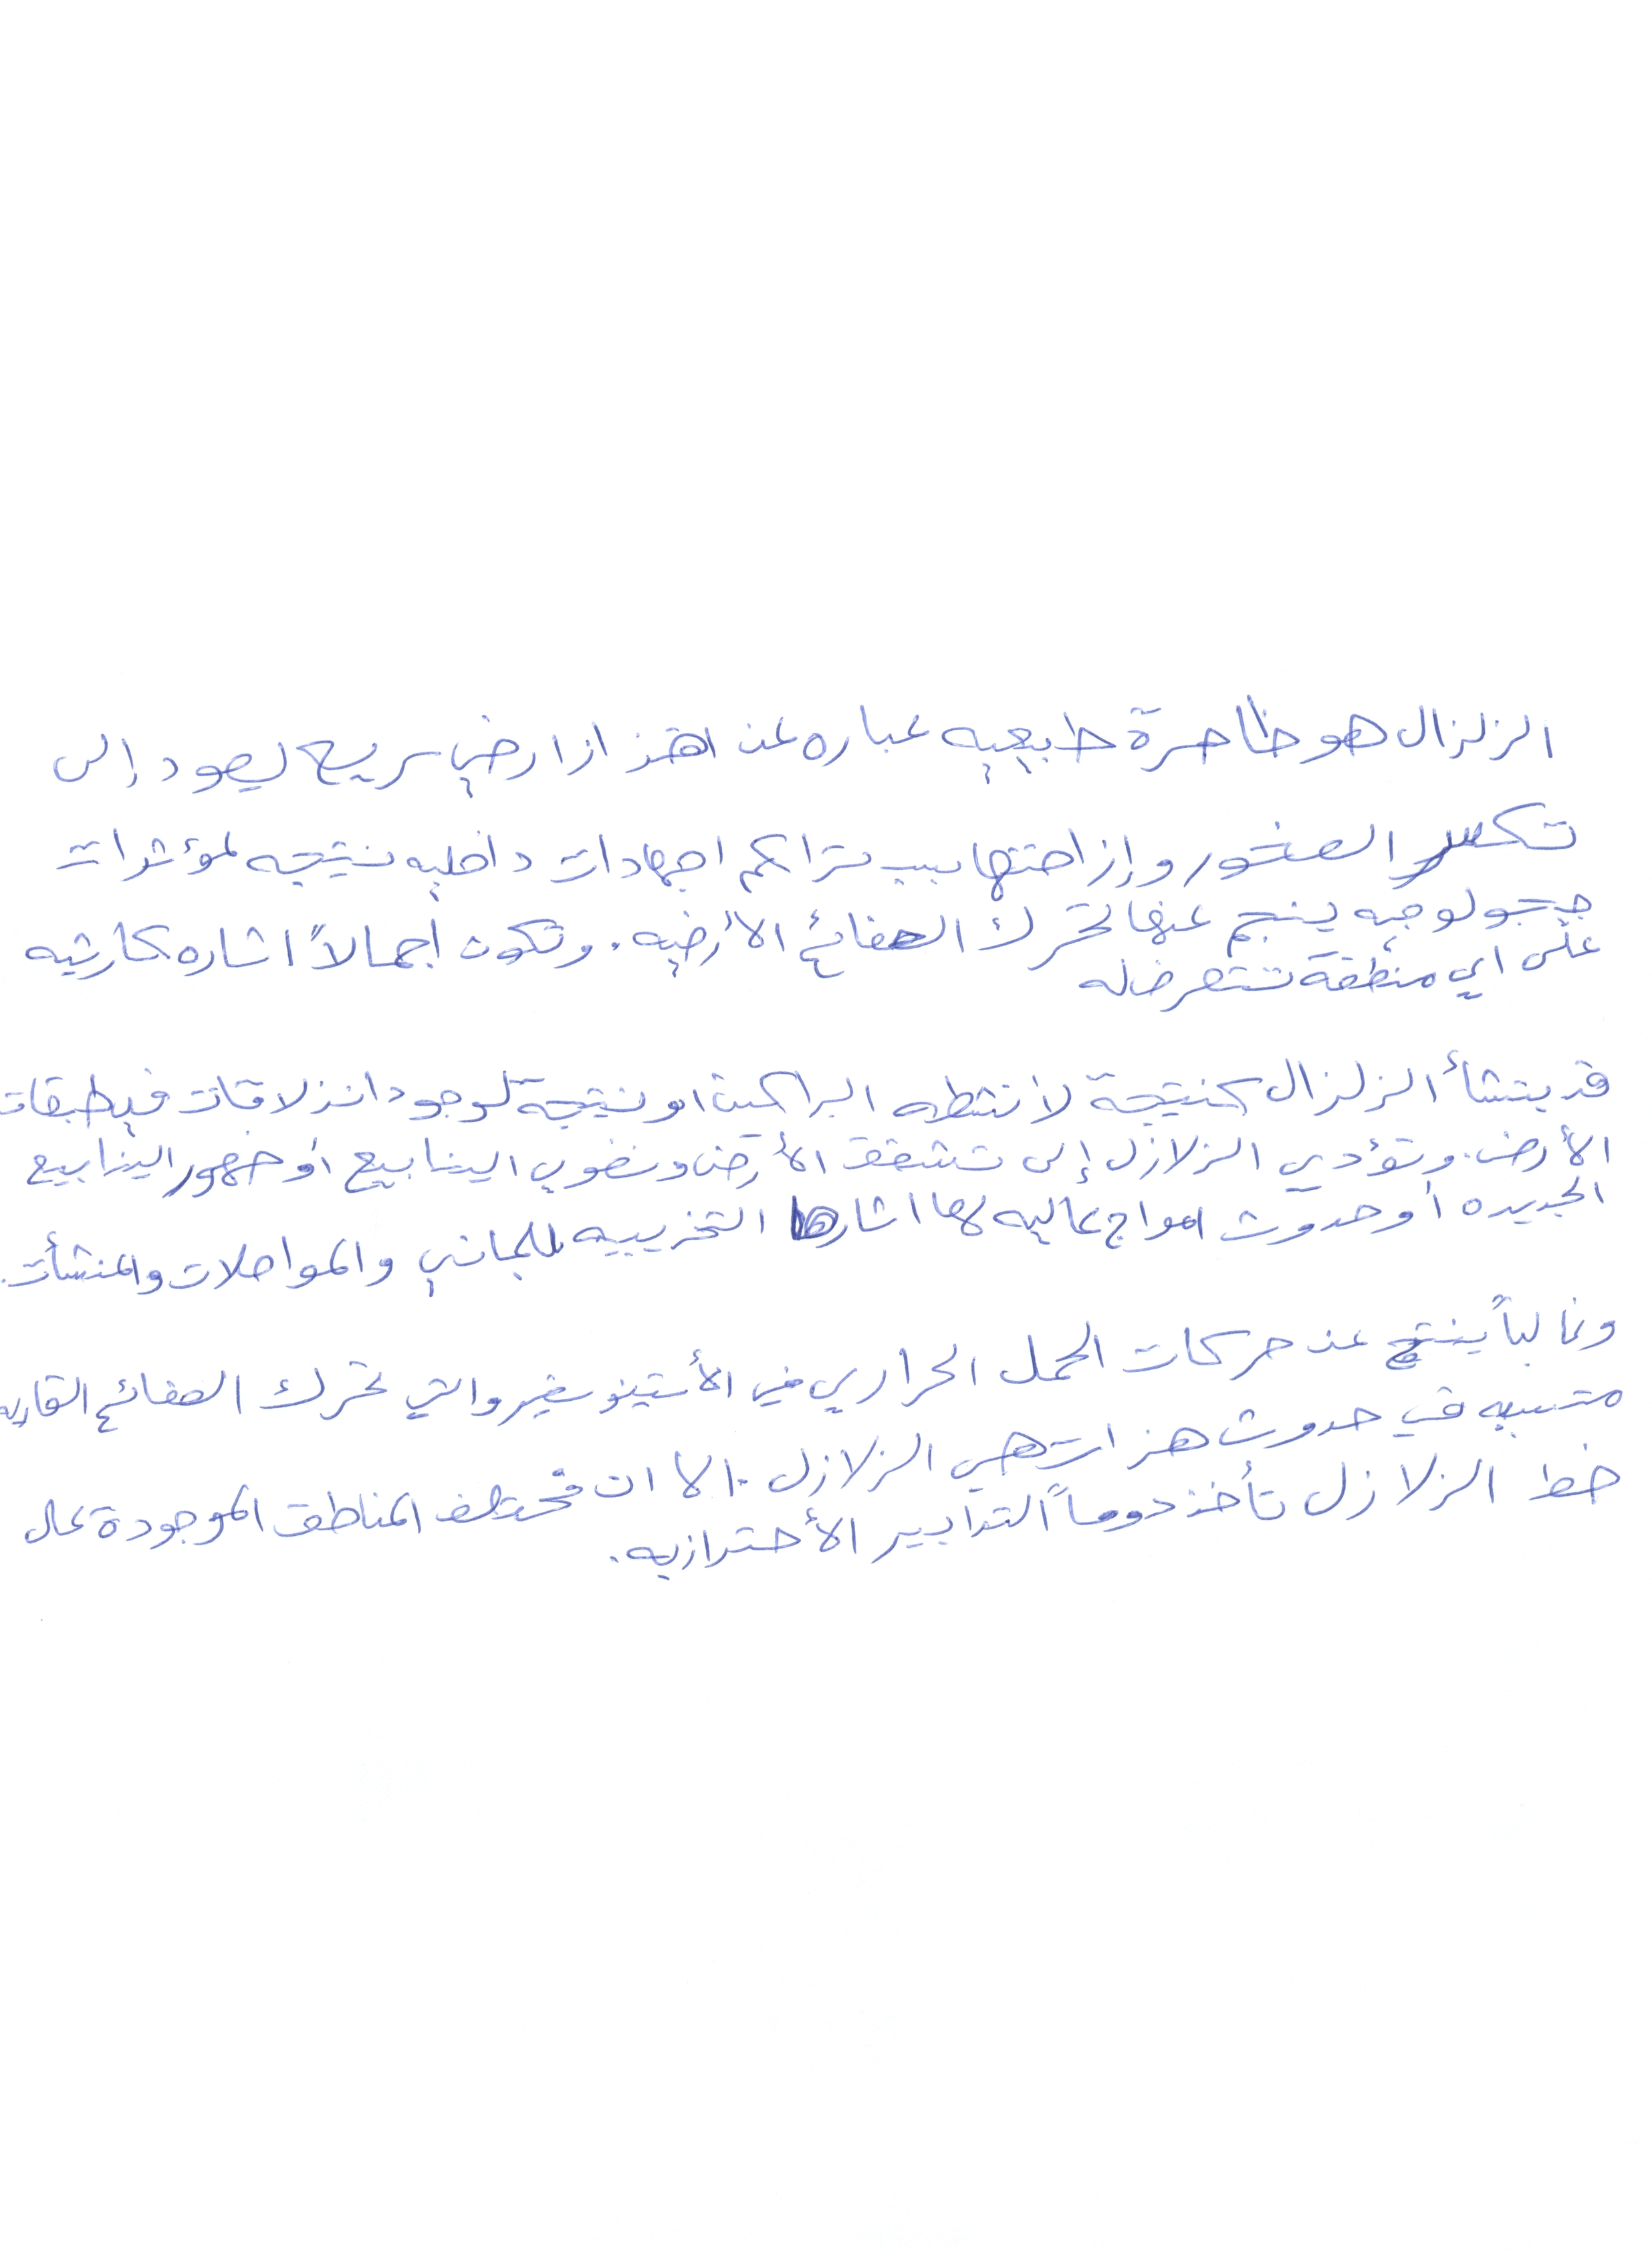 الزلزال هو ظاهرة طبيعيه عباره عن اهتزاز ارضي سريع يعود إلى
تكسر الصخور وإزاحتها بسبب تراكم اجهادات داخليه نتيجه لمؤثرات
جيولوجيه ينجم عنها تحرك الصفائح الأرضيه. وتكون أجمالاً اثاره كارثيه
على اي منطقة تتعرض له
قد ينشأ الزلزال كنتيجة لأنشطه البراكين او نتيجة لوجود انزلاقات في طبقات
الأرض. وتؤدي الزلازل إلى تشقق الأرض ونضوب الينابيع أو ضهور الينابيع
الجديده أو حدوث امواج عاليه لها اثارها التخريبيه للمباني والمواصلات والمنشأت.
وغالباً ينتج عن حركات الحمل الحراري في الأستينوسفير والتي تحرك الصفائح القاريه
متسببه في حدوث هزات هي الزلازل. الا ان مختلف المناطق الموجودة على
خط الزلازل تأخذ دوماً التدابير الأحترازيه.